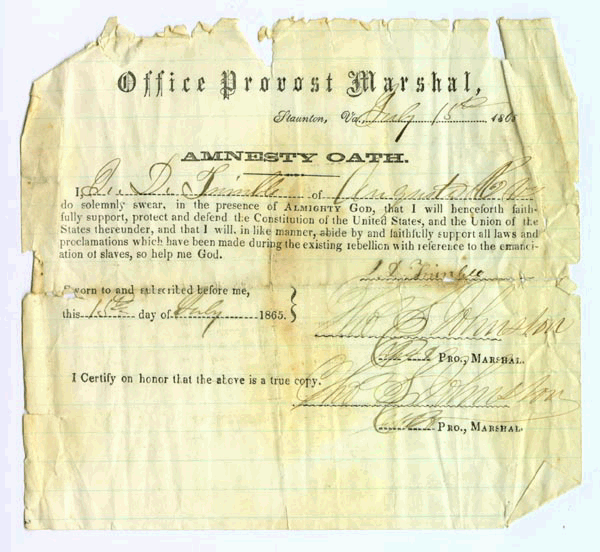 Office Provost Marshal,
Staunton, Va. July 15th 186
AMNESTY OATH.
I, J. D. Trimble of Augusta Co Va
do solemnly swear, in the presence of ALMIGHTY GOD, that I will henceforth faith-
fully support, protect and defend the Constitution of the United States, and the Union of the
States thereunder, and that I will, in like manner, abide by and faithfully support all laws and
proclamations which have been made during the existing rebellion with reference to the emanci-
ation of slaves, so help me God.
J. D. Trimble
Sworn to and subscribed before me,
this 15th day of July 1865.
Johnston
PRO., MARSHAL.
I Certify on honor that the above is a true copy.
Johnston
PRO., MARSHAL.